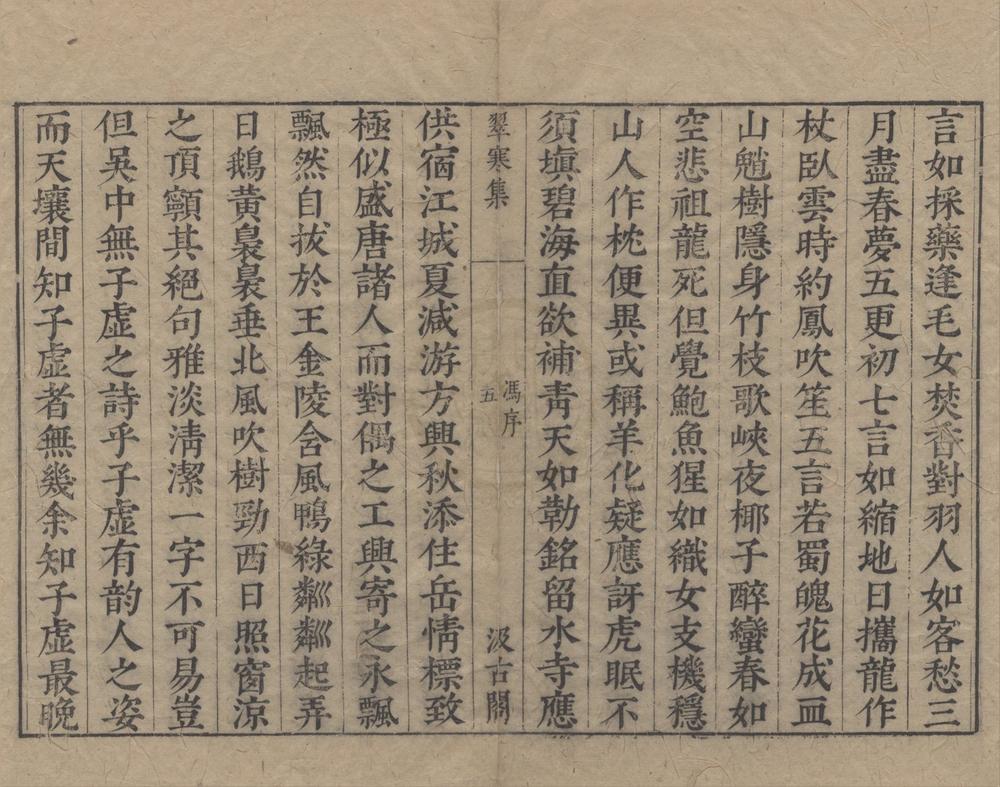 言如採藥逢毛女焚香對羽人如客愁三
月盡春夢五更初七言如縮地日攜龍作
杖臥雲時約鳳吹笙五言若蜀魄花成血
山魈樹隱身竹枝歌峽夜椰子醉蠻春如
空悲祖龍死但覺鮑魚猩如織女支機穩
山人作枕便異或稱羊化疑應訝虎眠不
須塡碧海直欲補靑天如勒銘留水寺應
翠寒集
馮序
五
汲古閣
供宿江城夏減游方興秋添住岳情標致
極似盛唐諸人而對偶之工興寄之永飄
飄然自拔於王金陵含風鴨綠粼粼起弄
日鵝黃裊裊垂北風吹樹勁西日照窗涼
之頂顙其絕句雅淡淸潔一字不可易豈
但吳中無子虛之詩乎子虛有韵人之姿
而天壤間知子虛者無幾余知子虛最晚